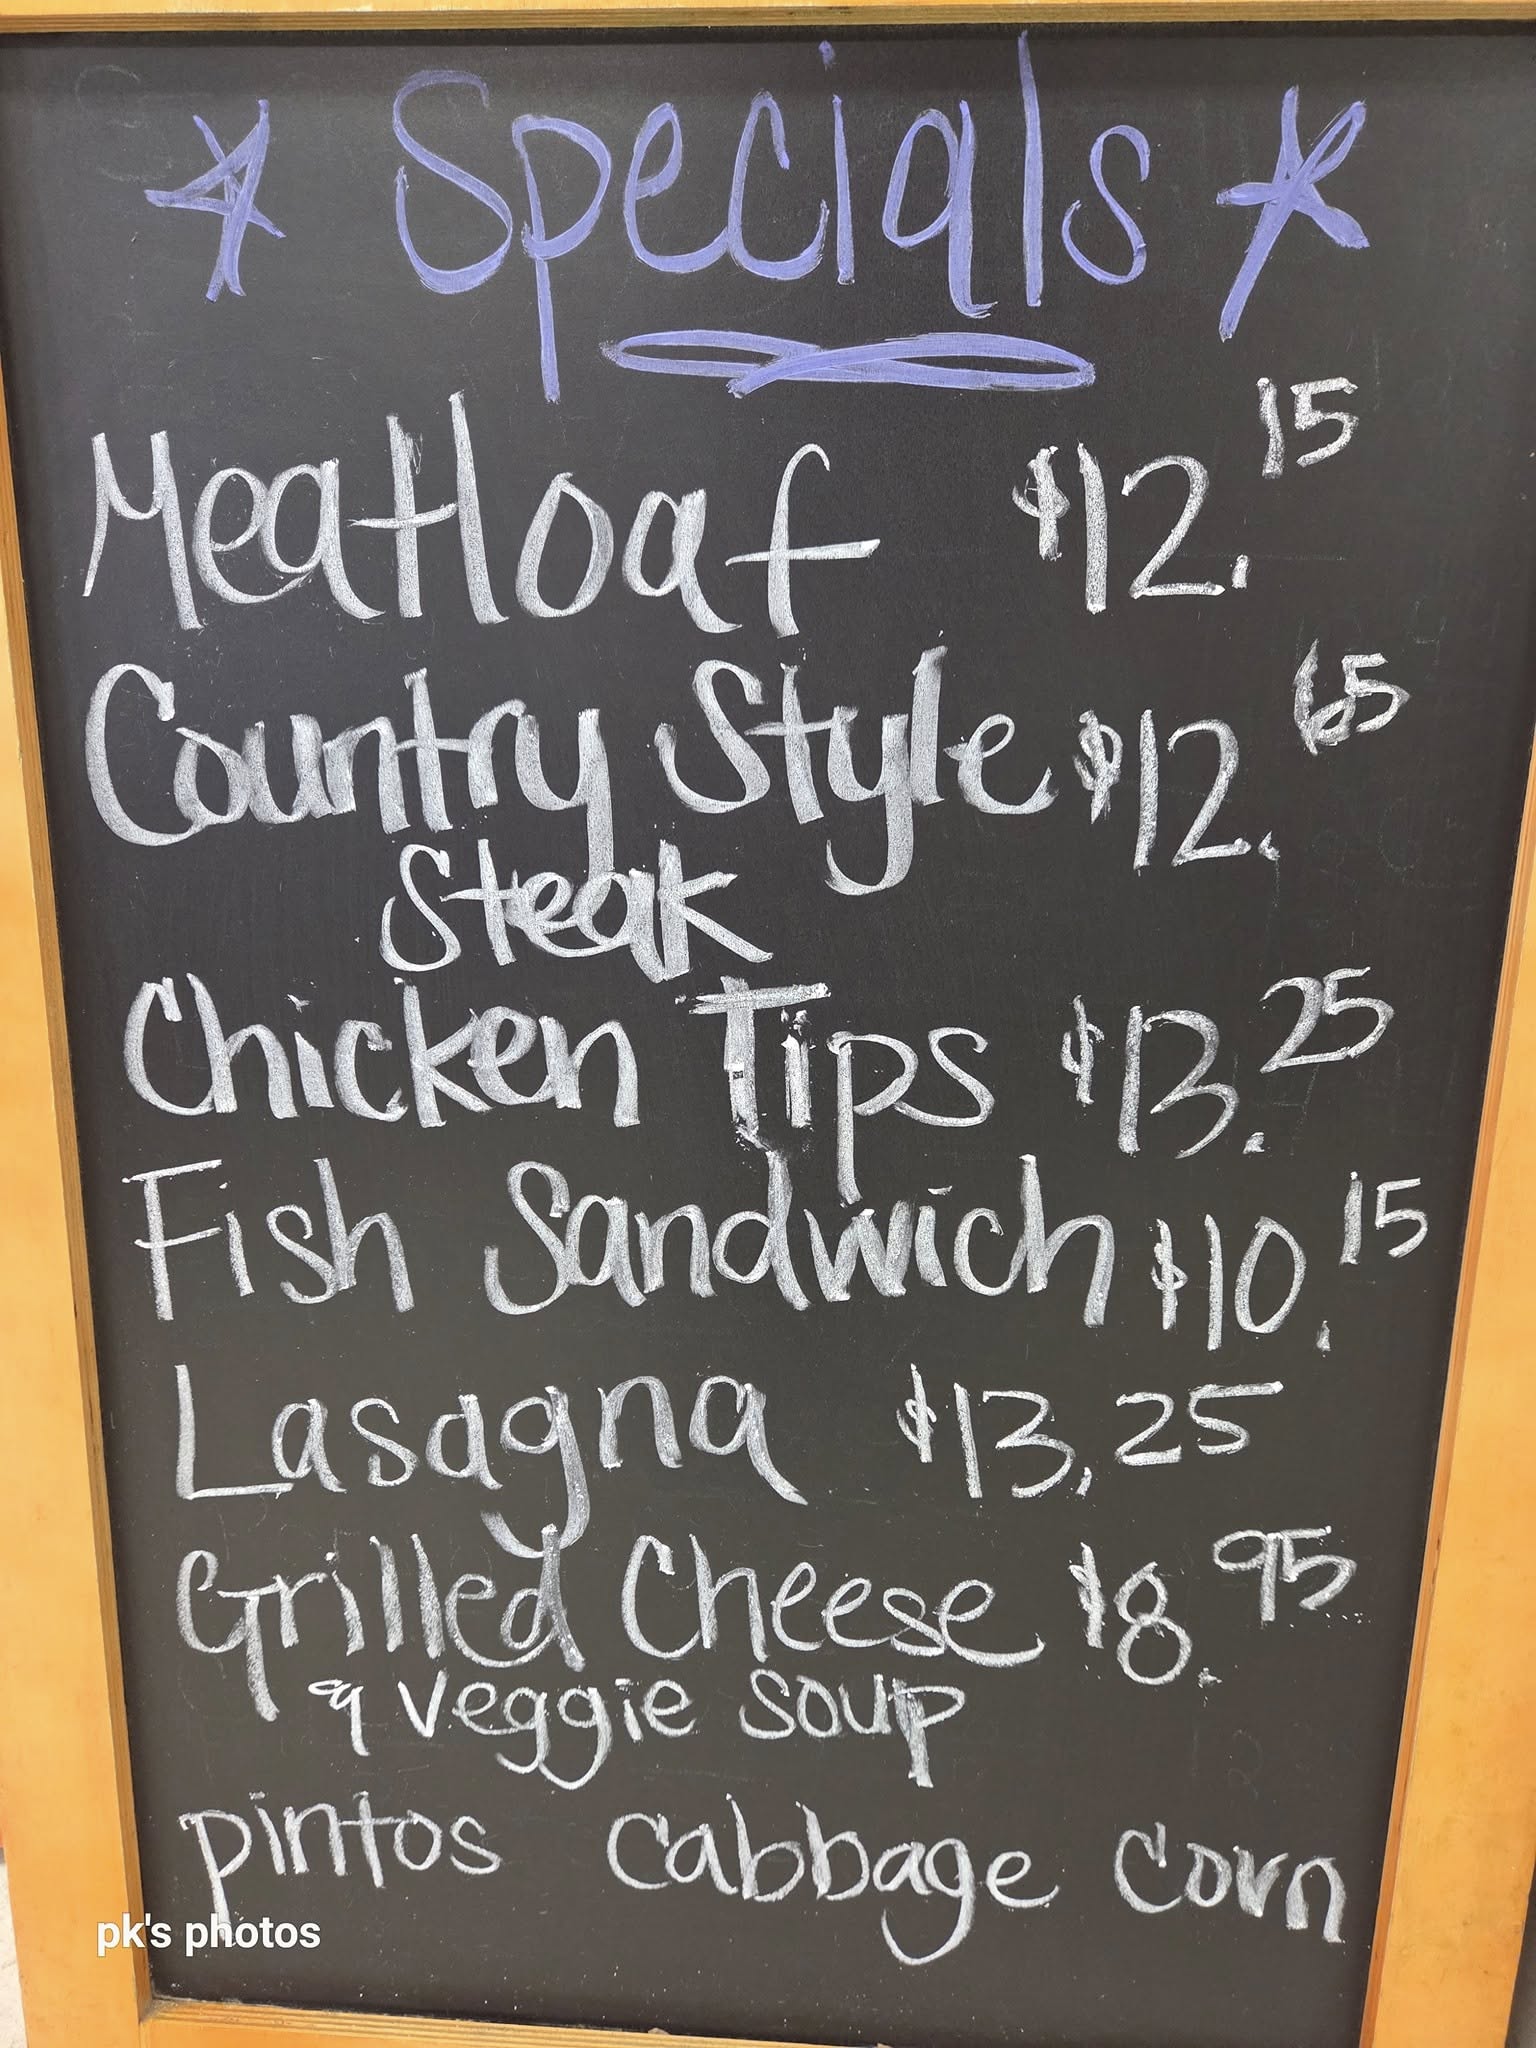 * Specials *
Meatloaf $12.15
Country Style $12.65
Steak
Chicken Tips $13.25
Fish Sandwich $10.15
Lasagna $13.25
Grilled Cheese $8.95
& veggie soup
pintos cabbage corn
pk's photos